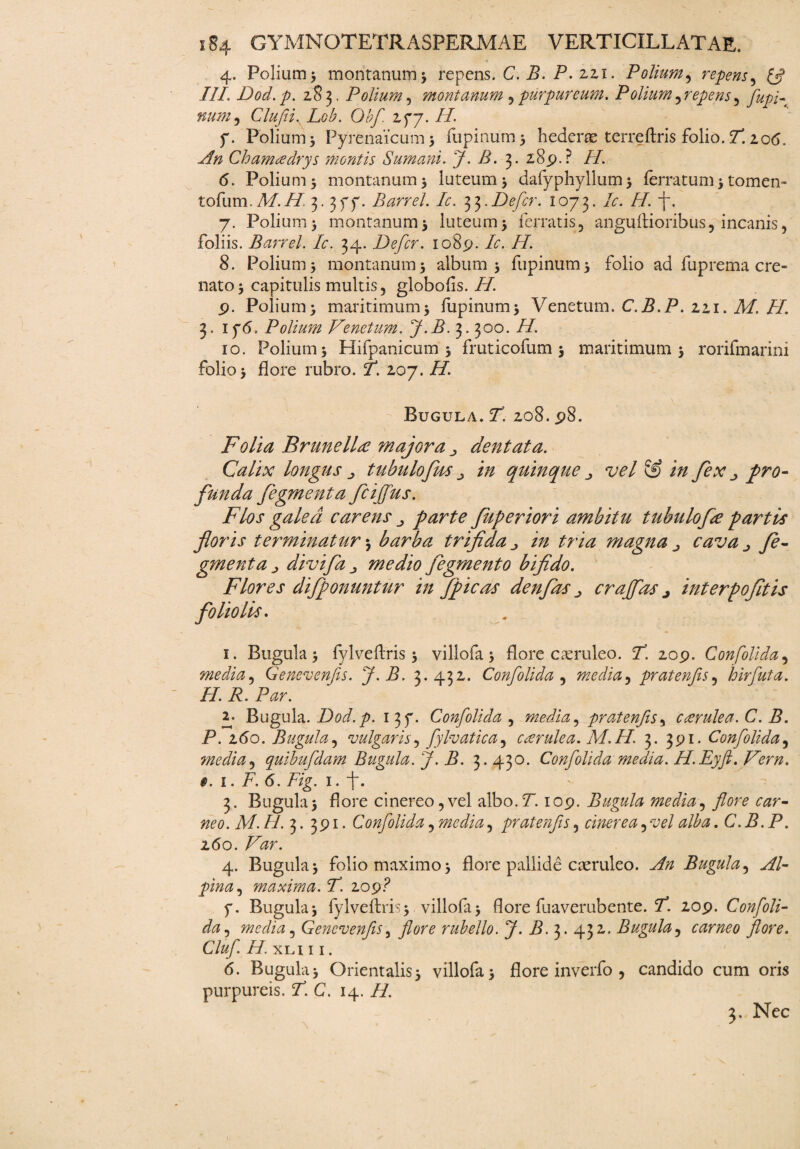 184 GYMNOTETRASPERMAE VERTICILLATAE.
4. Polium; montanum; repens. C. B. P. 221. Polium, repens, &
III. Dod. p. 283. Polium, montanum, purpureum. Polium, repens, ſupi-
num, Cluſii. Lob. Obſ. 257. H.
5. Polium; Pyrenaïcum; ſupinum; hederæ terreſtris folio. T. 206.
An Chamædrys montis Sumani. J. B. 3. 289.? H.
6. Polium; montanum; luteum; daſyphyllum; ſerratum; tomen-
toſum. M. H. 3. 355. Barrel. Ic. 33. Deſcr. 1073. Ic. H. †.
7. Polium; montanum; luteum; ſerratis, anguſtioribus, incanis,
foliis. Barrel. Ic. 34. Deſcr. 1089. Ic. H.
8. Polium; montanum; album; ſupinum; folio ad ſuprema cre-
nato; capitulis multis, globoſis. H.
9. Polium; maritimum; ſupinum; Venetum. C. B. P. 221. M. H.
3. 156. Polium Venetum. J. B. 3. 300. H.
10. Polium; Hiſpanicum; fruticoſum; maritimum; roriſmarini
folio; flore rubro. T. 207. H.
BUGULA. T. 208. 98.
Folia Brunellæ majora, dentata.
Calix longus, tubuloſus, in quinque, vel & in ſex, pro-
funda ſegmenta ſciſſus.
Flos galeâ carens, parte ſuperiori ambitu tubuloſæ partis
floris terminatur; barba trifida, in tria magna, cava, ſe-
gmenta, diviſa, medio ſegmento bifido.
Flores diſponuntur in ſpicas denſas, craſſas, interpoſitis
foliolis.
1. Bugula; ſylveſtris; villoſa; flore cæruleo. T. 209. Conſolida,
media, Genevenſis. J. B. 3. 432. Conſolida, media, pratenſis, hirſuta.
H. R. Par.
2. Bugula. Dod. p. 135. Conſolida, media, pratenſis, cærulea. C. B.
P. 260. Bugula, vulgaris, ſylvatica, cærulea. M. H. 3. 391. Conſolida,
media, quibuſdam Bugula. J. B. 3. 430. Conſolida media. H. Eyſt. Vern.
o. 1. F. 6. Fig. 1. †.
3. Bugula; flore cinereo, vel albo. T. 109. Bugula media, flore car-
neo. M. H. 3. 391. Conſolida, media, pratenſis, cinerea, vel alba. C. B. P.
260. Var.
4. Bugula; folio maximo; flore pallidè cæruleo. An Bugula, Al-
pina, maxima. T. 209?
5. Bugula; ſylveſtris; villoſa; flore ſuaverubente. T. 209. Conſoli-
da, media, Genevenſis, flore rubello. J. B. 3. 432. Bugula, carneo flore.
Cluſ. H. XLIII.
6. Bugula; Orientalis; villoſa; flore inverſo, candido cum oris
purpureis. T. C. 14. H.
3. Nec